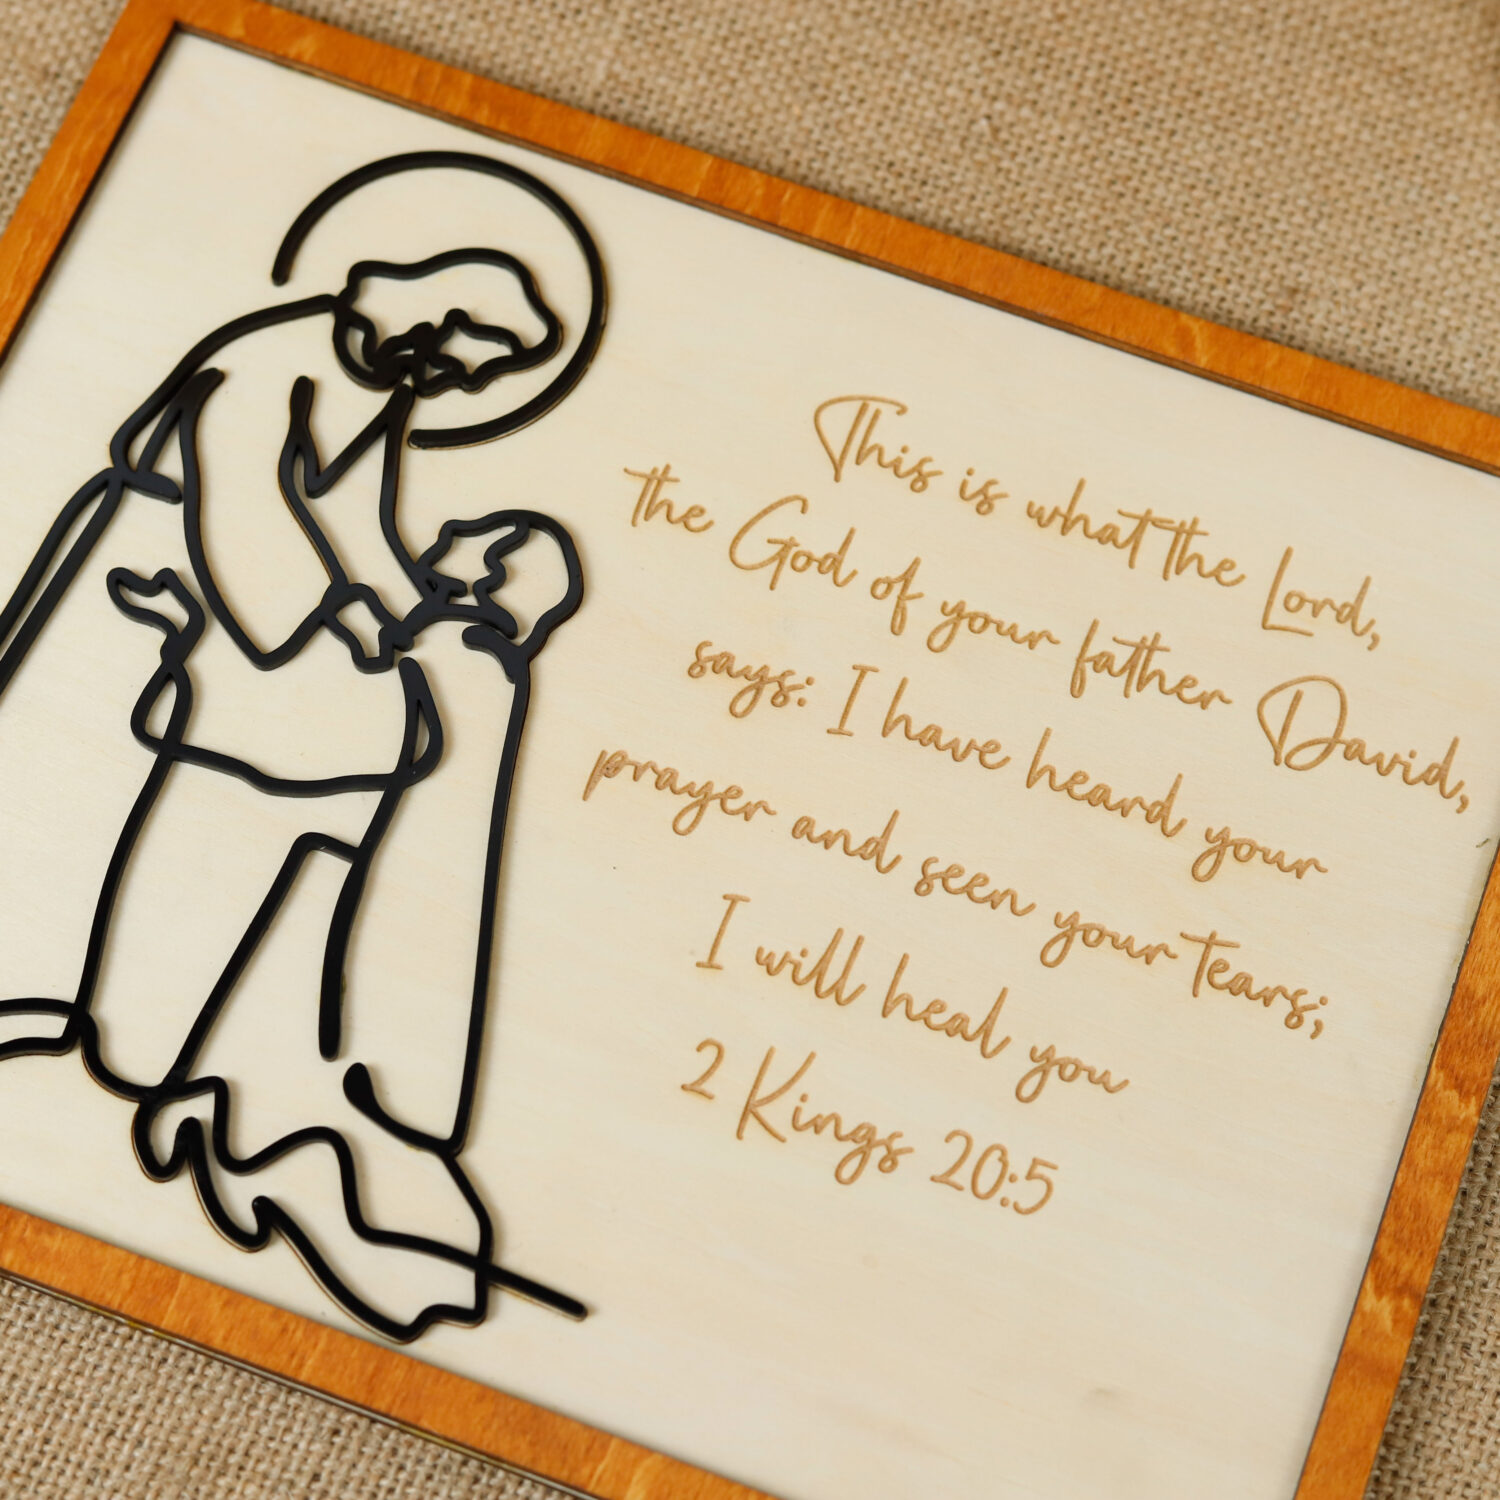 This is what the Lord,
the God of your father David,
says: I have heard your
prayer and seen your tears;
I will heal you
2 Kings 20:5